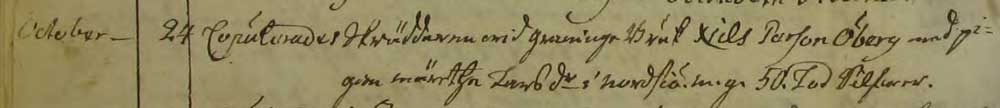 October – 24 Copulerades Skrädderen wid Graninge Bruk Nils Persson Öberg med pi=
gan Märetha Lars dr i Nordsiö. m.g. 50. Lod Silfwer.